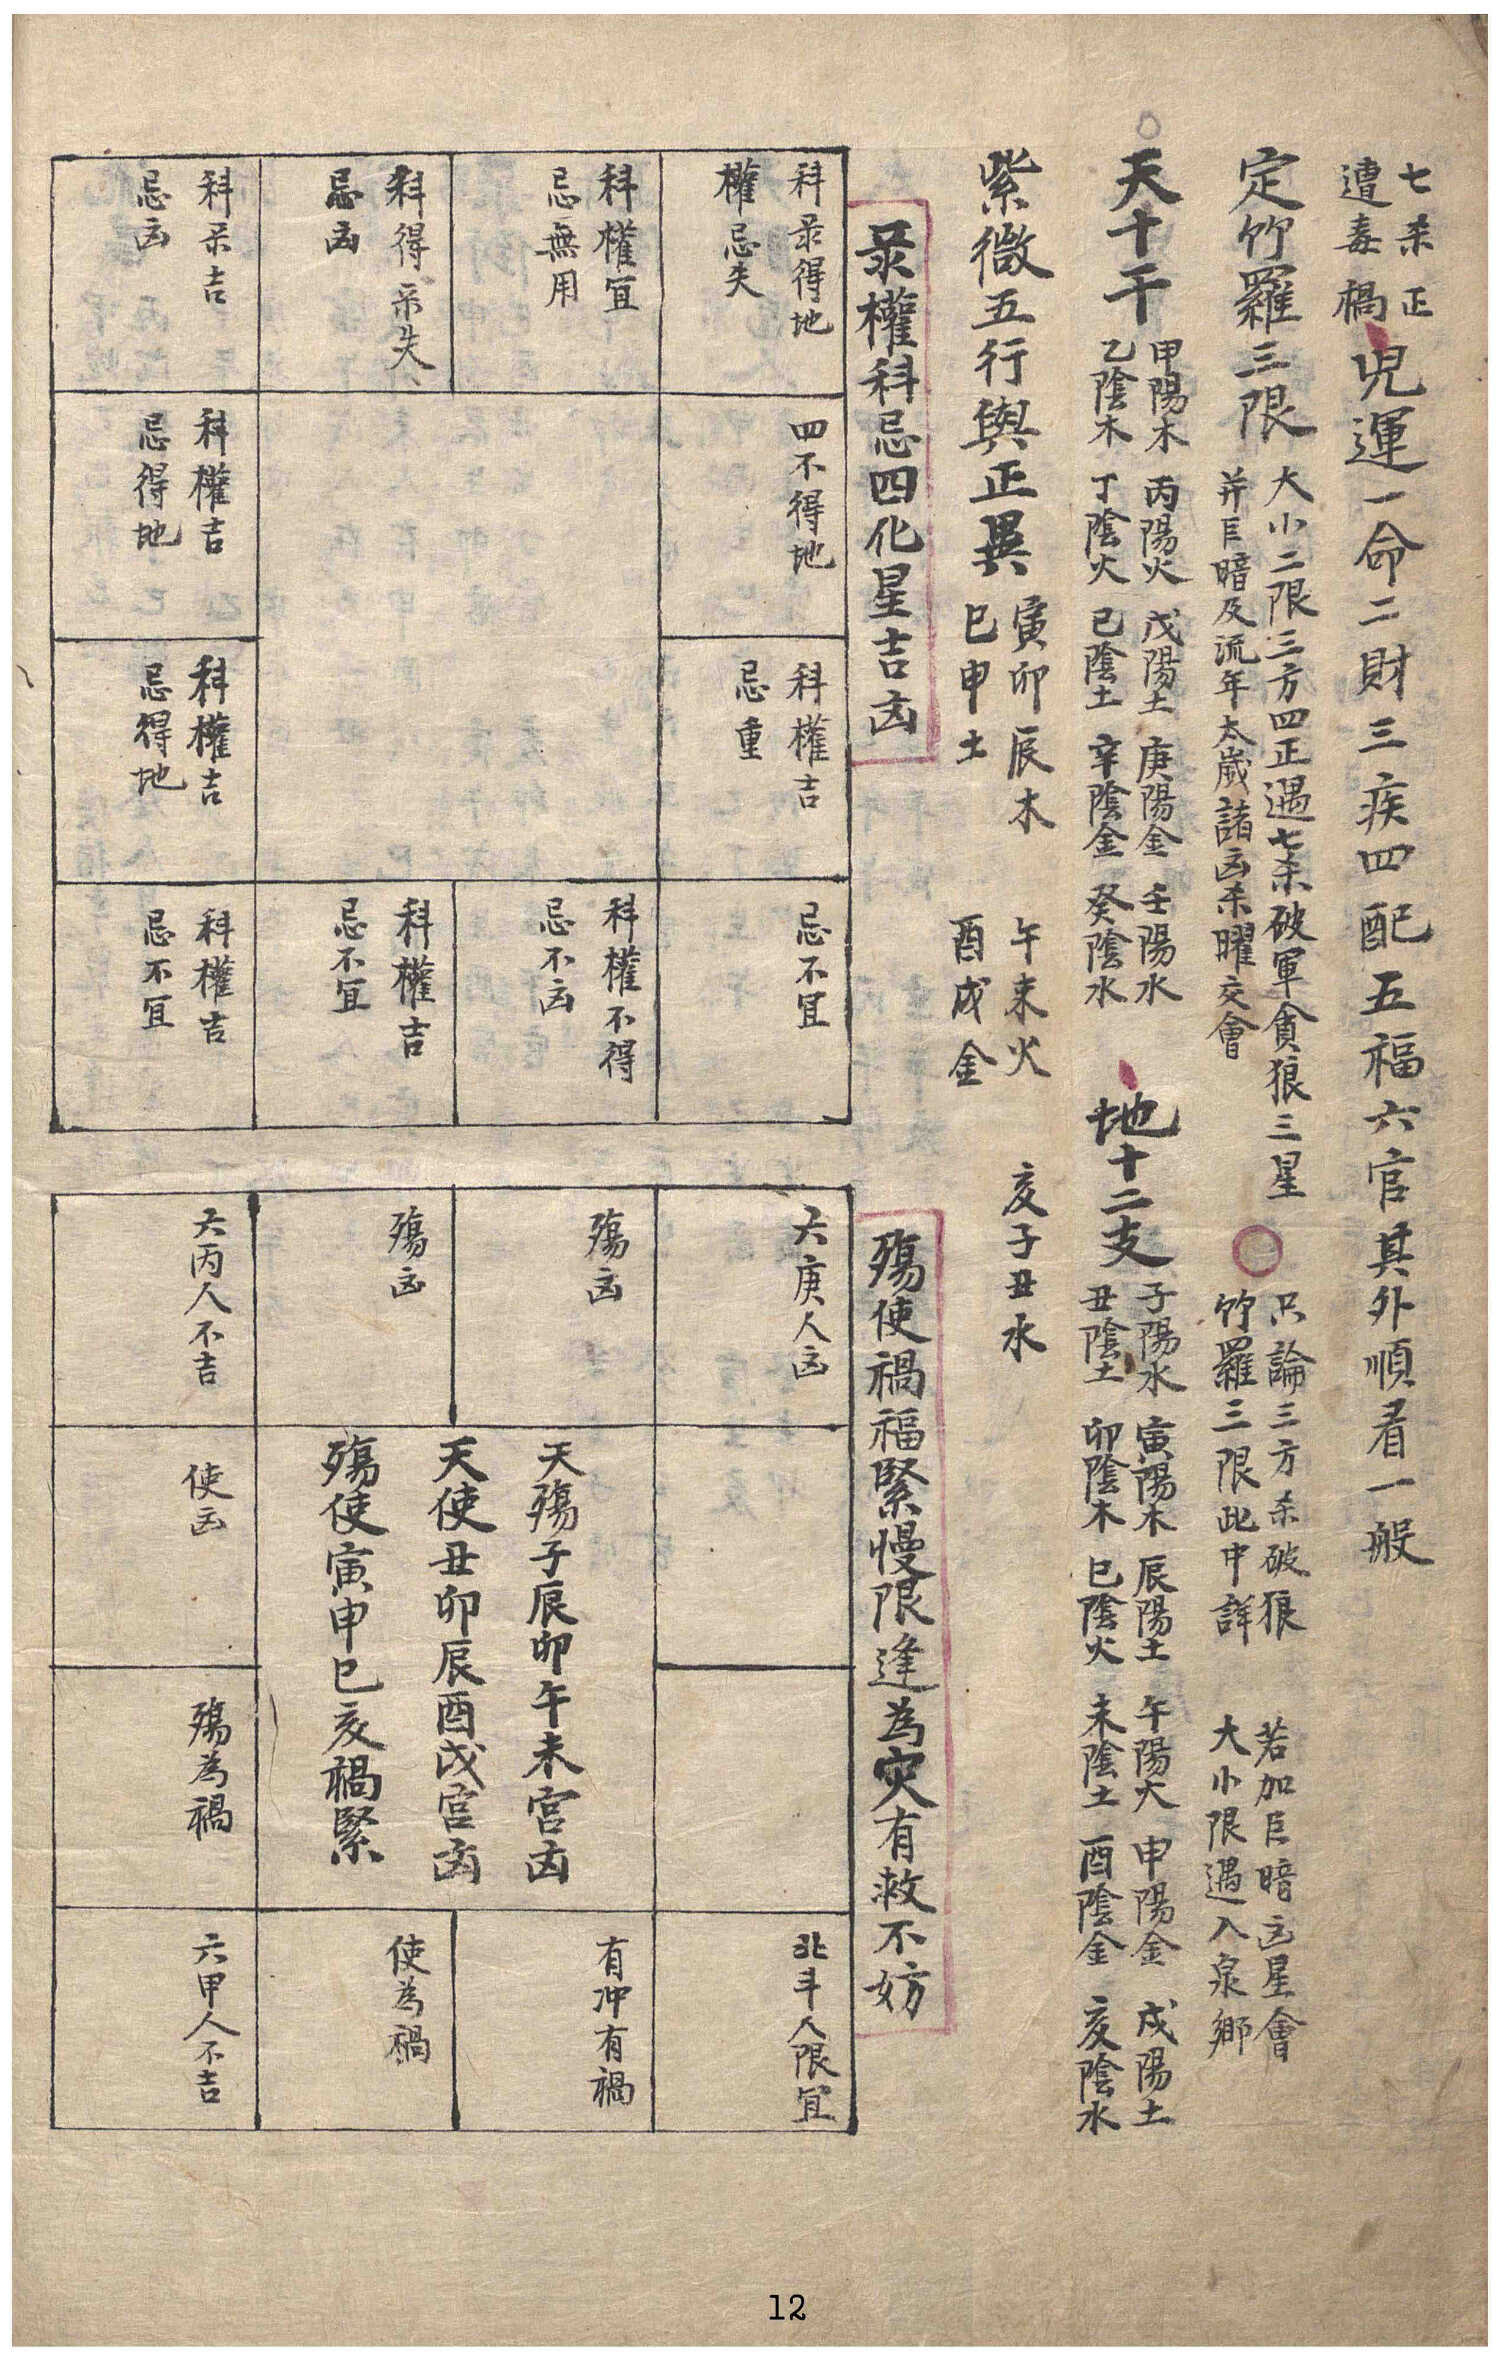 七杀正
遭毒禍
児運一命二財三疾四配五福六官其外順看一般
定竹羅三限
大小二限三方四正遇七杀破軍貪狼三星
并巨暗及流年太歲諸凶杀曜交會
只論三方杀破狼
竹羅三限此中詳
若加巨暗凶星會
大小限遇入泉鄉
天十干
甲陽木 丙陽火 戊陽土 庚陽金 壬陽水
乙陰木 丁陰火 己陰土 辛陰金 癸陰水
地十二支
子陽水 寅陽木 辰陽土 午陽火 申陽金 戌陽土
丑陰土 卯陰木 巳陰火 未陰土 酉陰金 亥陰水
紫微五行與正異
寅卯辰木
巳申土
午未火
酉戌金
亥子丑水
彔權科忌四化星吉凶
科彔得地
權忌失
四不得地
科權吉
忌重
忌不冝
科權冝
忌無用
科權不得
忌不凶
科得彔失
忌凶
科權吉
忌不冝
科彔吉
忌凶
科權吉
忌得地
科權吉
忌得地
科權吉
忌不冝
殤使禍福緊慢限逢為灾有救不妨
六庚人凶
北斗人限冝
殤凶
有冲有禍
天殤子辰卯午未宮凶
天使丑卯辰酉戌宮凶
殤使寅申巳亥禍緊
殤凶
使為禍
六丙人不吉
使凶
殤為禍
六甲人不吉
12